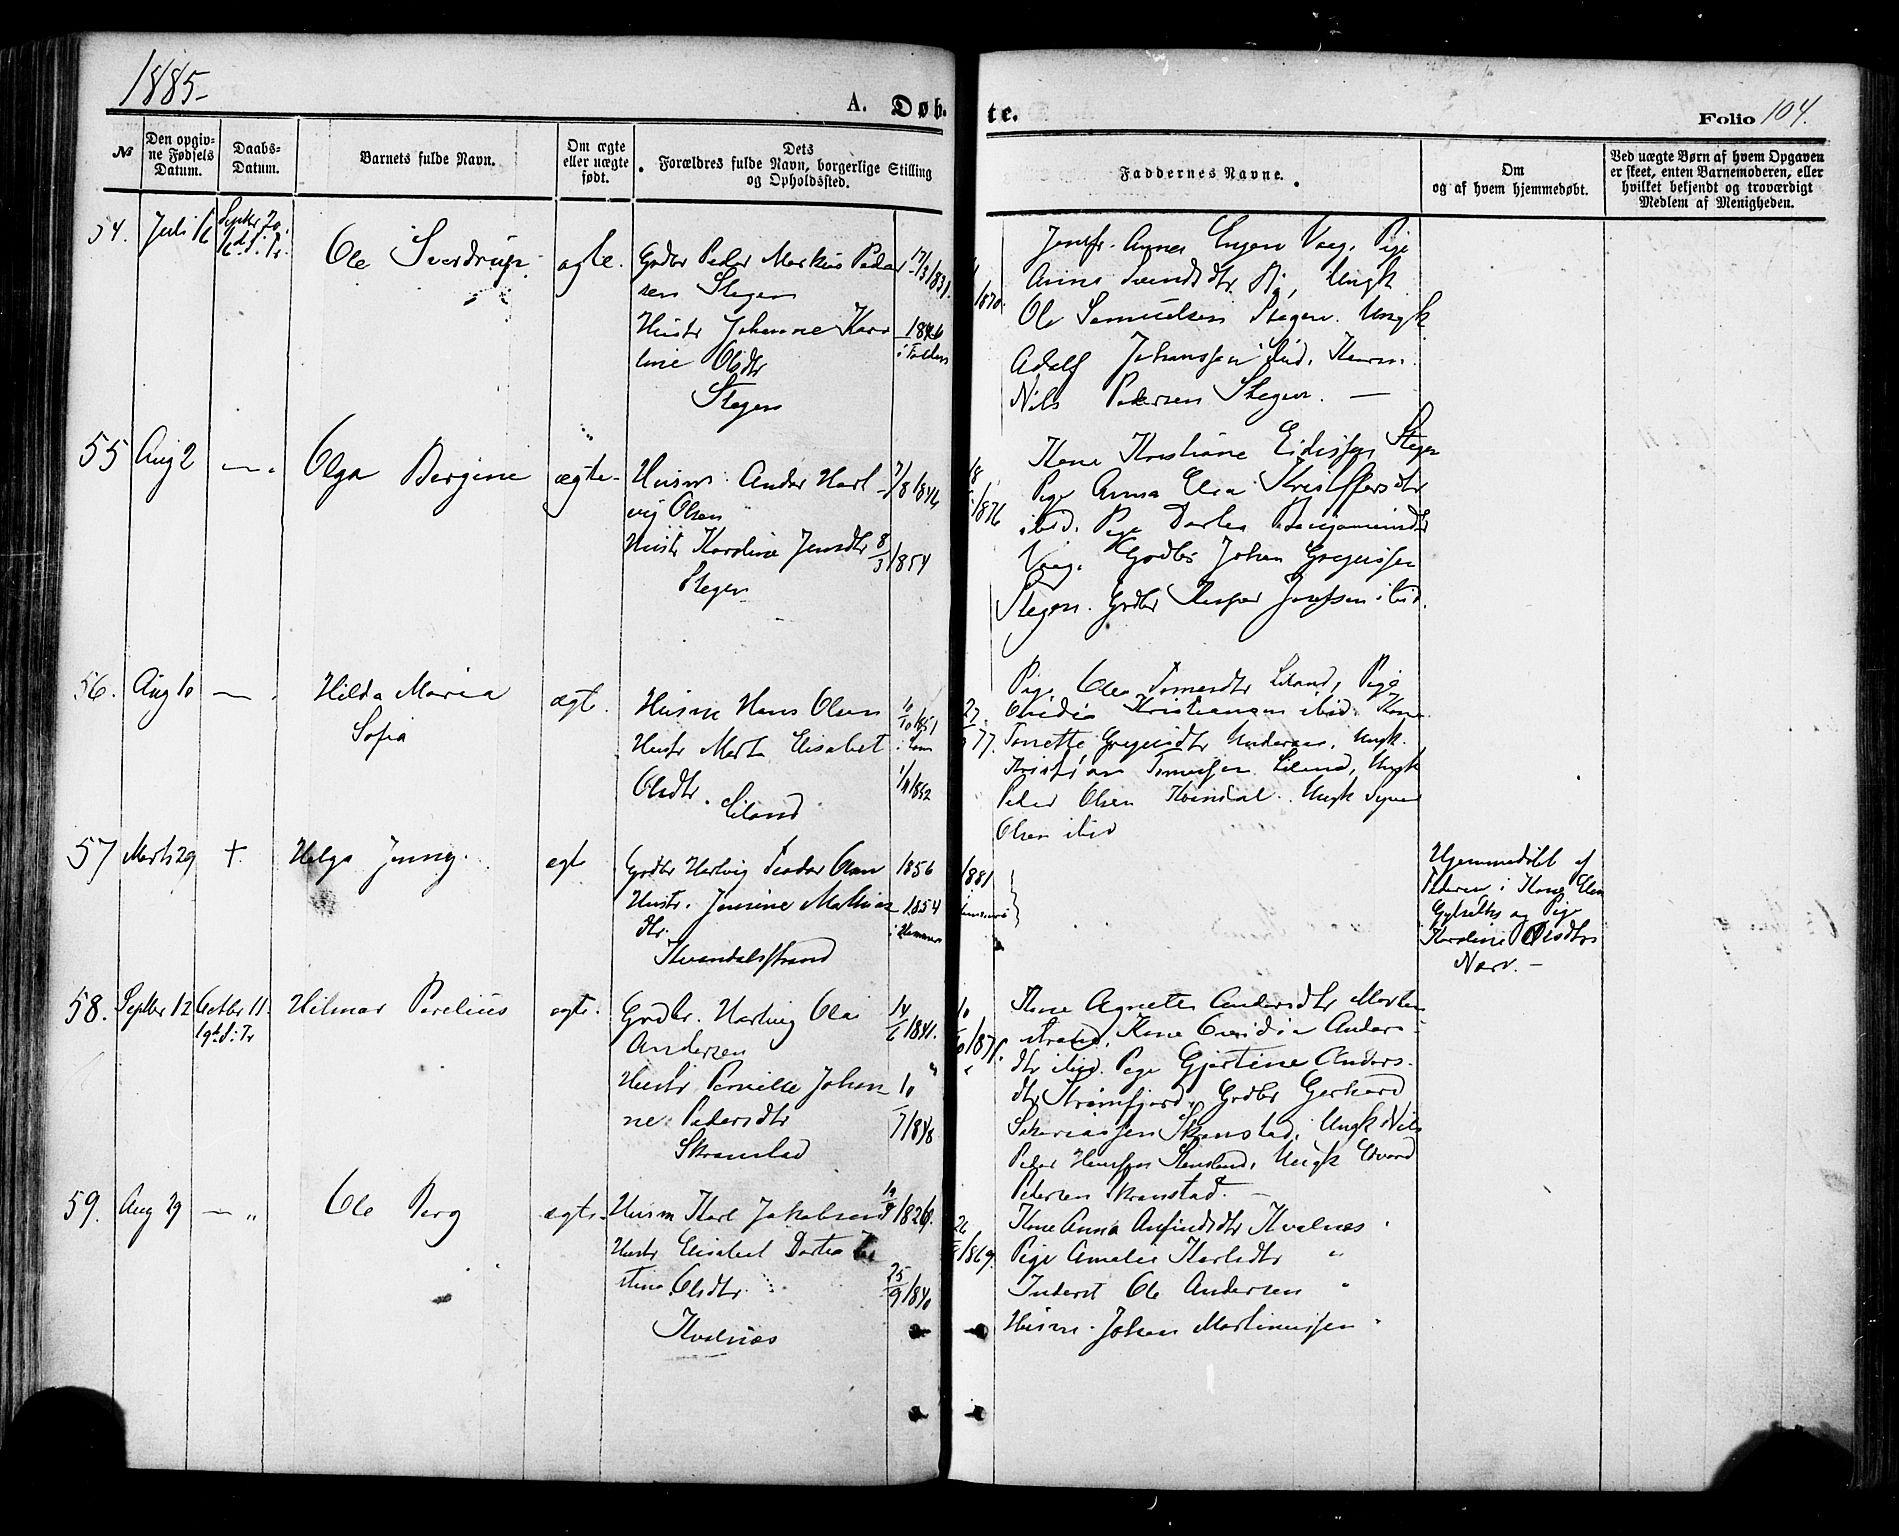 1885.
A. Døb-
te.
Folio 104.
№
Den opgiv-
ne Fødsels
Datum.
Daabs-
Datum.
Barnets fulde Navn.
Om ægte
eller uægte
født.
Dets
Forældres fulde Navn, borgerlige Stilling
og Opholdssted.
Faddernes Navne.
Om
og af hvem hjemmedøbt.
Ved uægte Børn af hvem Opgaven
er skeet, enten Barnemoderen, eller
hvilket bekjendt og troværdigt
Medlem af Menigheden.
54. Juli 16 Septbr 20.
Ole Sverdrup ægte.
Gdbr Peder Markus Peder
sen Stegen 17/3 1831.
Hustr Johanne Karo
line Olsdtr 1846
i Folden
Stegen
Jomfr. Anna Engen Vaag, Pige
Anna Svendsdtr Ungk
Ole Samuelsen Stegen. Ungk
Adolf Johanssen ibid.
Nils Pedersen Stegen. —
55 Aug 2 — „
Olga Bergine ægte
Husm. Andor Hart
vig Olsen 7/8 1846
Hustr Karoline Jensdtr 8/3 1854
Stegen
18 / 1876
Kone Kristiane Eidissen Stegen
Pige Anna Elea Kristoffersdtr
ibid. Pige Dortea Benjaminsdtr
Vaag. Godbr Johan Gregusssen
Stegen. Grdbr Kasper Josefsen ibid.
56. Aug 10 —
Hilda Maria
Sofia
ægte.
Husm Hans Olsen 10/10 1851
Hustr Marta Elisabet
Olsdtr. 1852
Liland
27. / 77.
Pige Olea Tomasdtr Liland, Pige
Ovidia Kristiansen ibid. Kone
Tonette Gregusdtr Ungk.
Kristian Tomassen Liland, Ungk
Peder Olsen Kvandal. Ungk
Olsen ibid
57 Marts 29 +
Helga Jenny. ægte
Grdbr Hartvig Teodor Olsen 1856
Hustr. Jensine Mathias 1854
dtr. i Hammerø
Kvandalsstrand
1881
Hjemmedøbt af
Faderen, Kone Elen
og Pige
Karoline Olsdtr
Nærv. —
58. Septbr 12 Octbr 11.
19d. s. Tr
Hilmar Parelius ægte.
Grdbr. Hartvig Olai
Andersen 14/6 1841.
Hustr Pernille Johan
ne Pedersdtr 10/7 1848
Skranstad
10 / 187
Kone Agnete Andersdtr Marhau
strand, Kone Ovidia Anders
dtr ibid. Pige Gjertine Anders
dtr Strømfjord, Grdbr Gerhard
Sakariassen Skranstad, Ungk Nils
Peder Hanssen Stensland, Ungk Edvard
Pedersen Skranstad. —
59. Aug 29 — „
Ole Berg ægte
Husm Karl Jakobsen 1826.
Hustr Elisabet Dortea
stina Olsdtr. 25/9 1840
Kvalnes
26 / 1869.
Kone Anna Arfindsdtr Kvalnes
Pige Amalie Karlsdtr „
Inderst Ole Andersen „
Husm. Johan Martinussen „